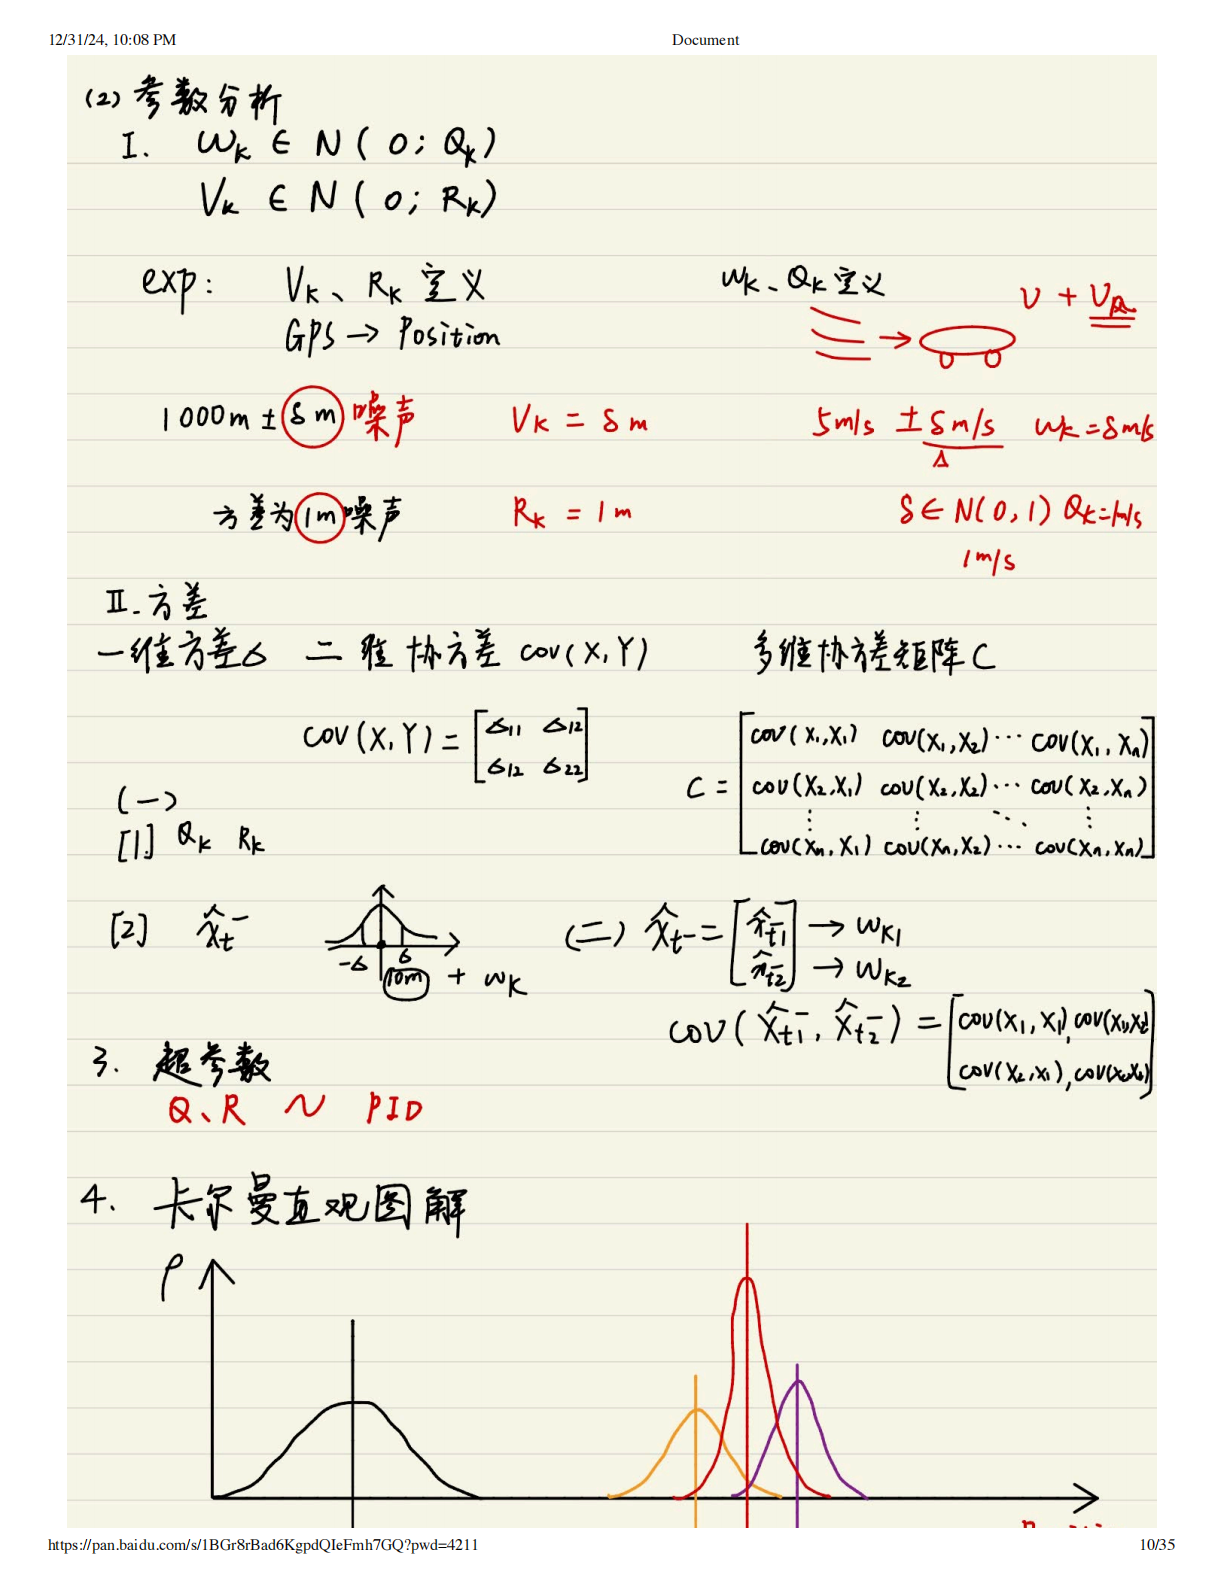 12/31/24, 10:08 PM Document
(2) 参数分析
I. Wk ∈ N( 0; Qk)
Vk ∈ N( 0; Rk)
exp: Vk、Rk 定义 Wk、Qk 定义
GPS → Position V +
1000m ± δm 噪声 Vk = δm 5m/s ± δm/s Wk=δm/s
Δ
方差为1m噪声 Rk = 1m δ∈N(0,1) Qk=1m/s
1m/s
II. 方差
一维方差δ 二维 协方差 cov(X,Y) 多维协方差矩阵C
cov(X,Y) = [δ11 δ12
δ12 δ22]
C = [cov(X1,X1) cov(X1,X2)··· cov(X1,Xn)
cov(X2,X1) cov(X2,X2)··· cov(X2,Xn)
⋮ ⋮ ⋱ ⋮
cov(Xn,X1) cov(Xn,X2)··· cov(Xn,Xn)]
(一)
[1] Qk Rk
[2] x̂t⁻ -δ δ 10m + Wk
(二) x̂t⁻ = [x̂t1⁻ → Wk1
x̂t2⁻] → Wk2
cov(x̂t1⁻, x̂t2⁻) = [cov(X1,X1), cov(X1,X2)
cov(X2,X1), cov(X2,X2)]
3. 超参数
Q、R ~ PID
4. 卡尔曼直观图解
ρ
https://pan.baidu.com/s/1BGr8rBad6KgpdQIeFmh7GQ?pwd=4211 10/35